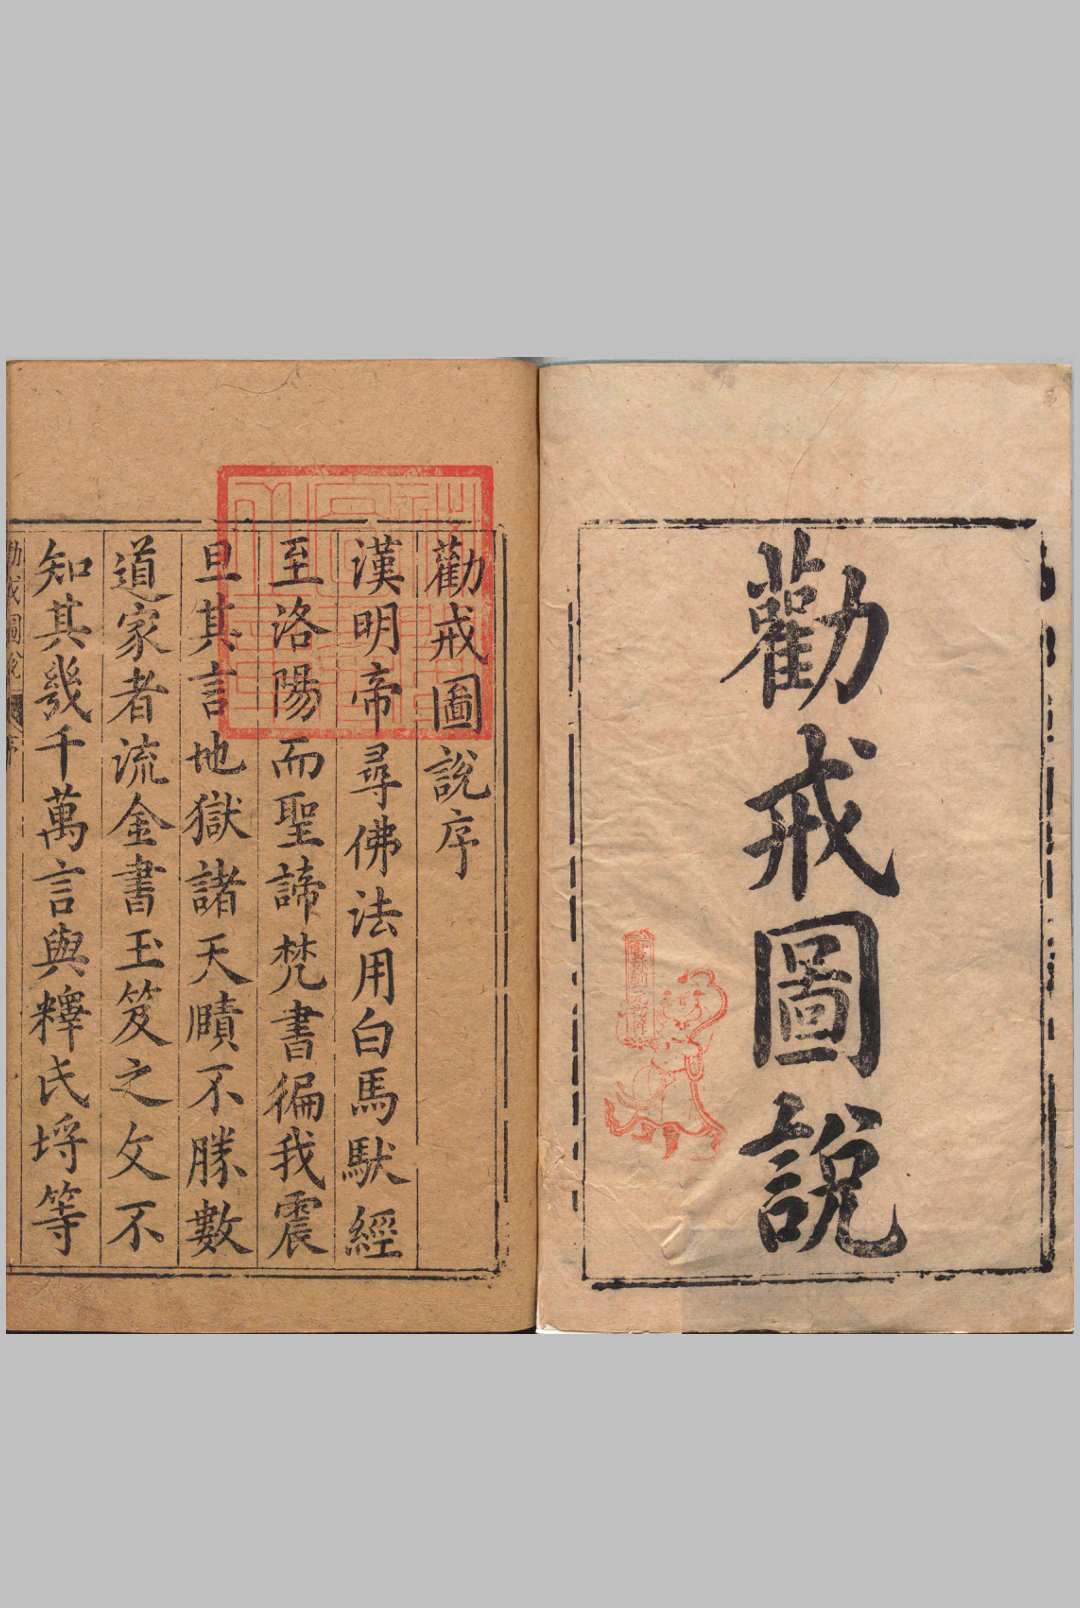 勸戒圖說
勸戒圖說序
漢明帝尋佛法用白馬馱經
至洛陽而聖諦梵書徧我震
旦其言地獄諸天賾不勝數
道家者流金書玉笈之文不
知其幾千萬言與釋氏埒等
勸戒圖說
序